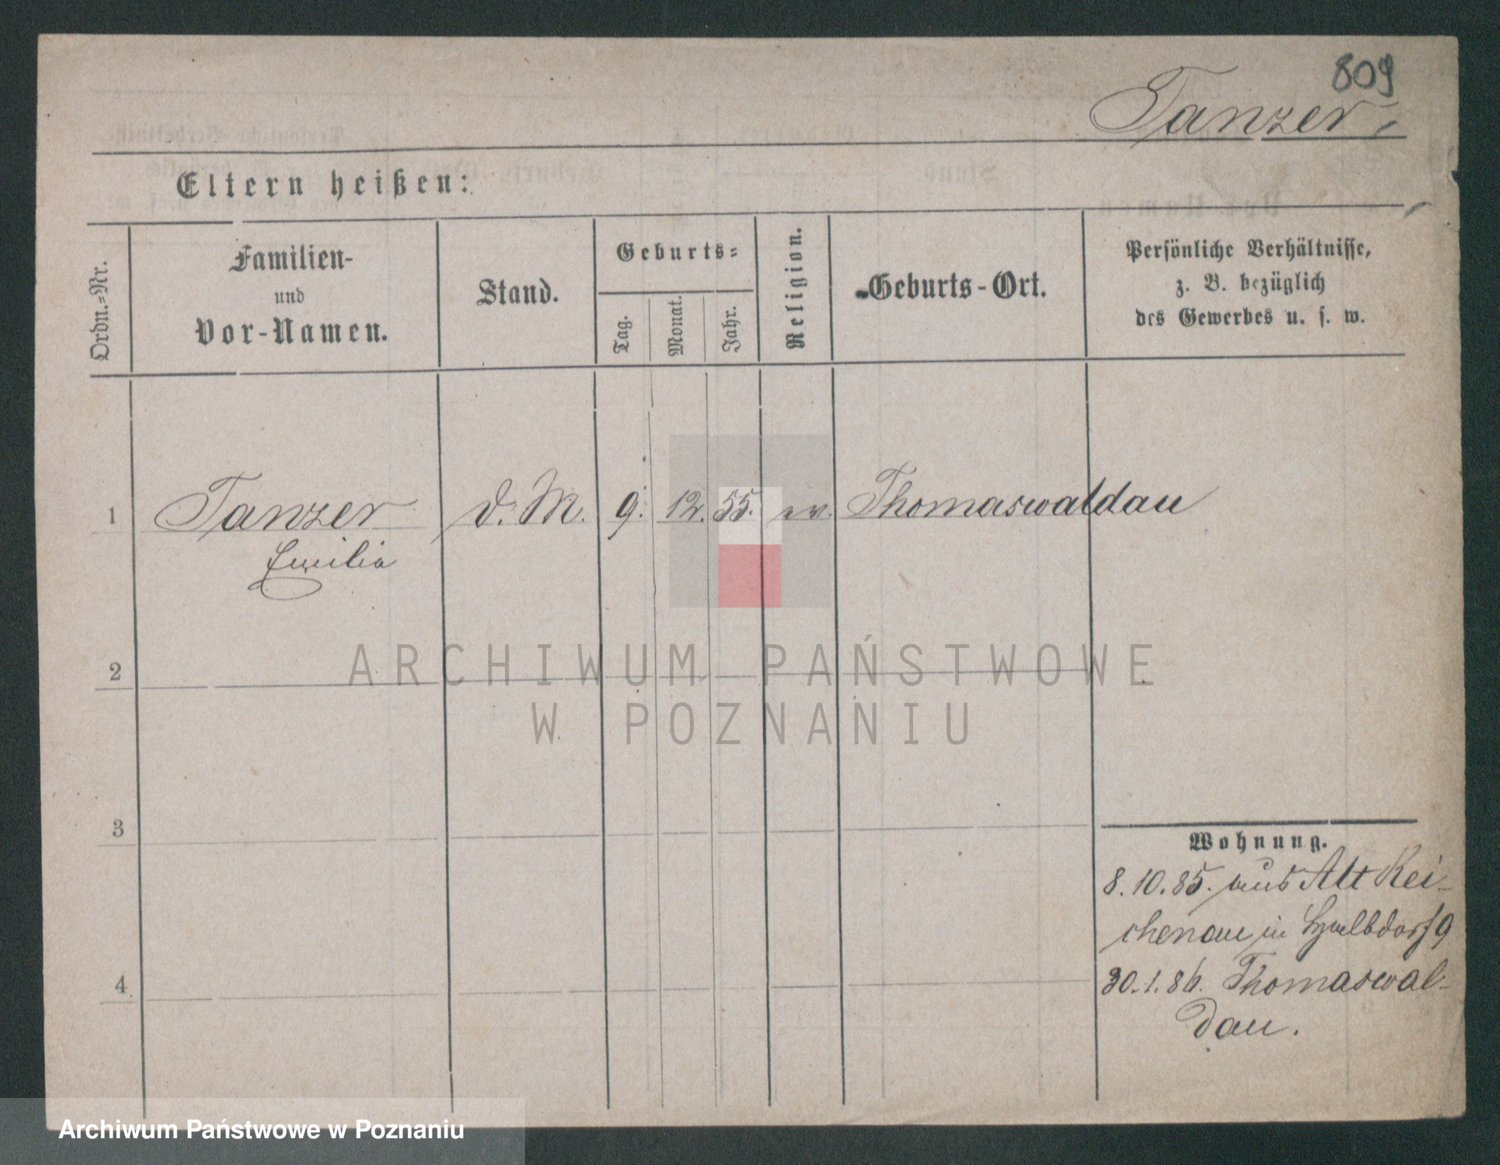 809
Tanzer
Eltern heißen:
Ordn.=Nr.
Familien-
und
Vor-Namen.
Stand.
Geburts=
Tag.
Monat.
Jahr.
Religion.
Geburts-Ort.
Persönliche Verhältnisse,
z. B. bezüglich
des Gewerbes u. s. w.
1 Tanzer d. M. 9. 12. 55. ev. Thomaswaldau
Emilia
2
ARCHIWUM PAŃSTWOWE
W POZNANIU
3
Wohnung.
8.10.85. aus Alt Rei-
chenau in 9
4
30.1.86. Thomaswal-
dau.
Archiwum Państwowe w Poznaniu